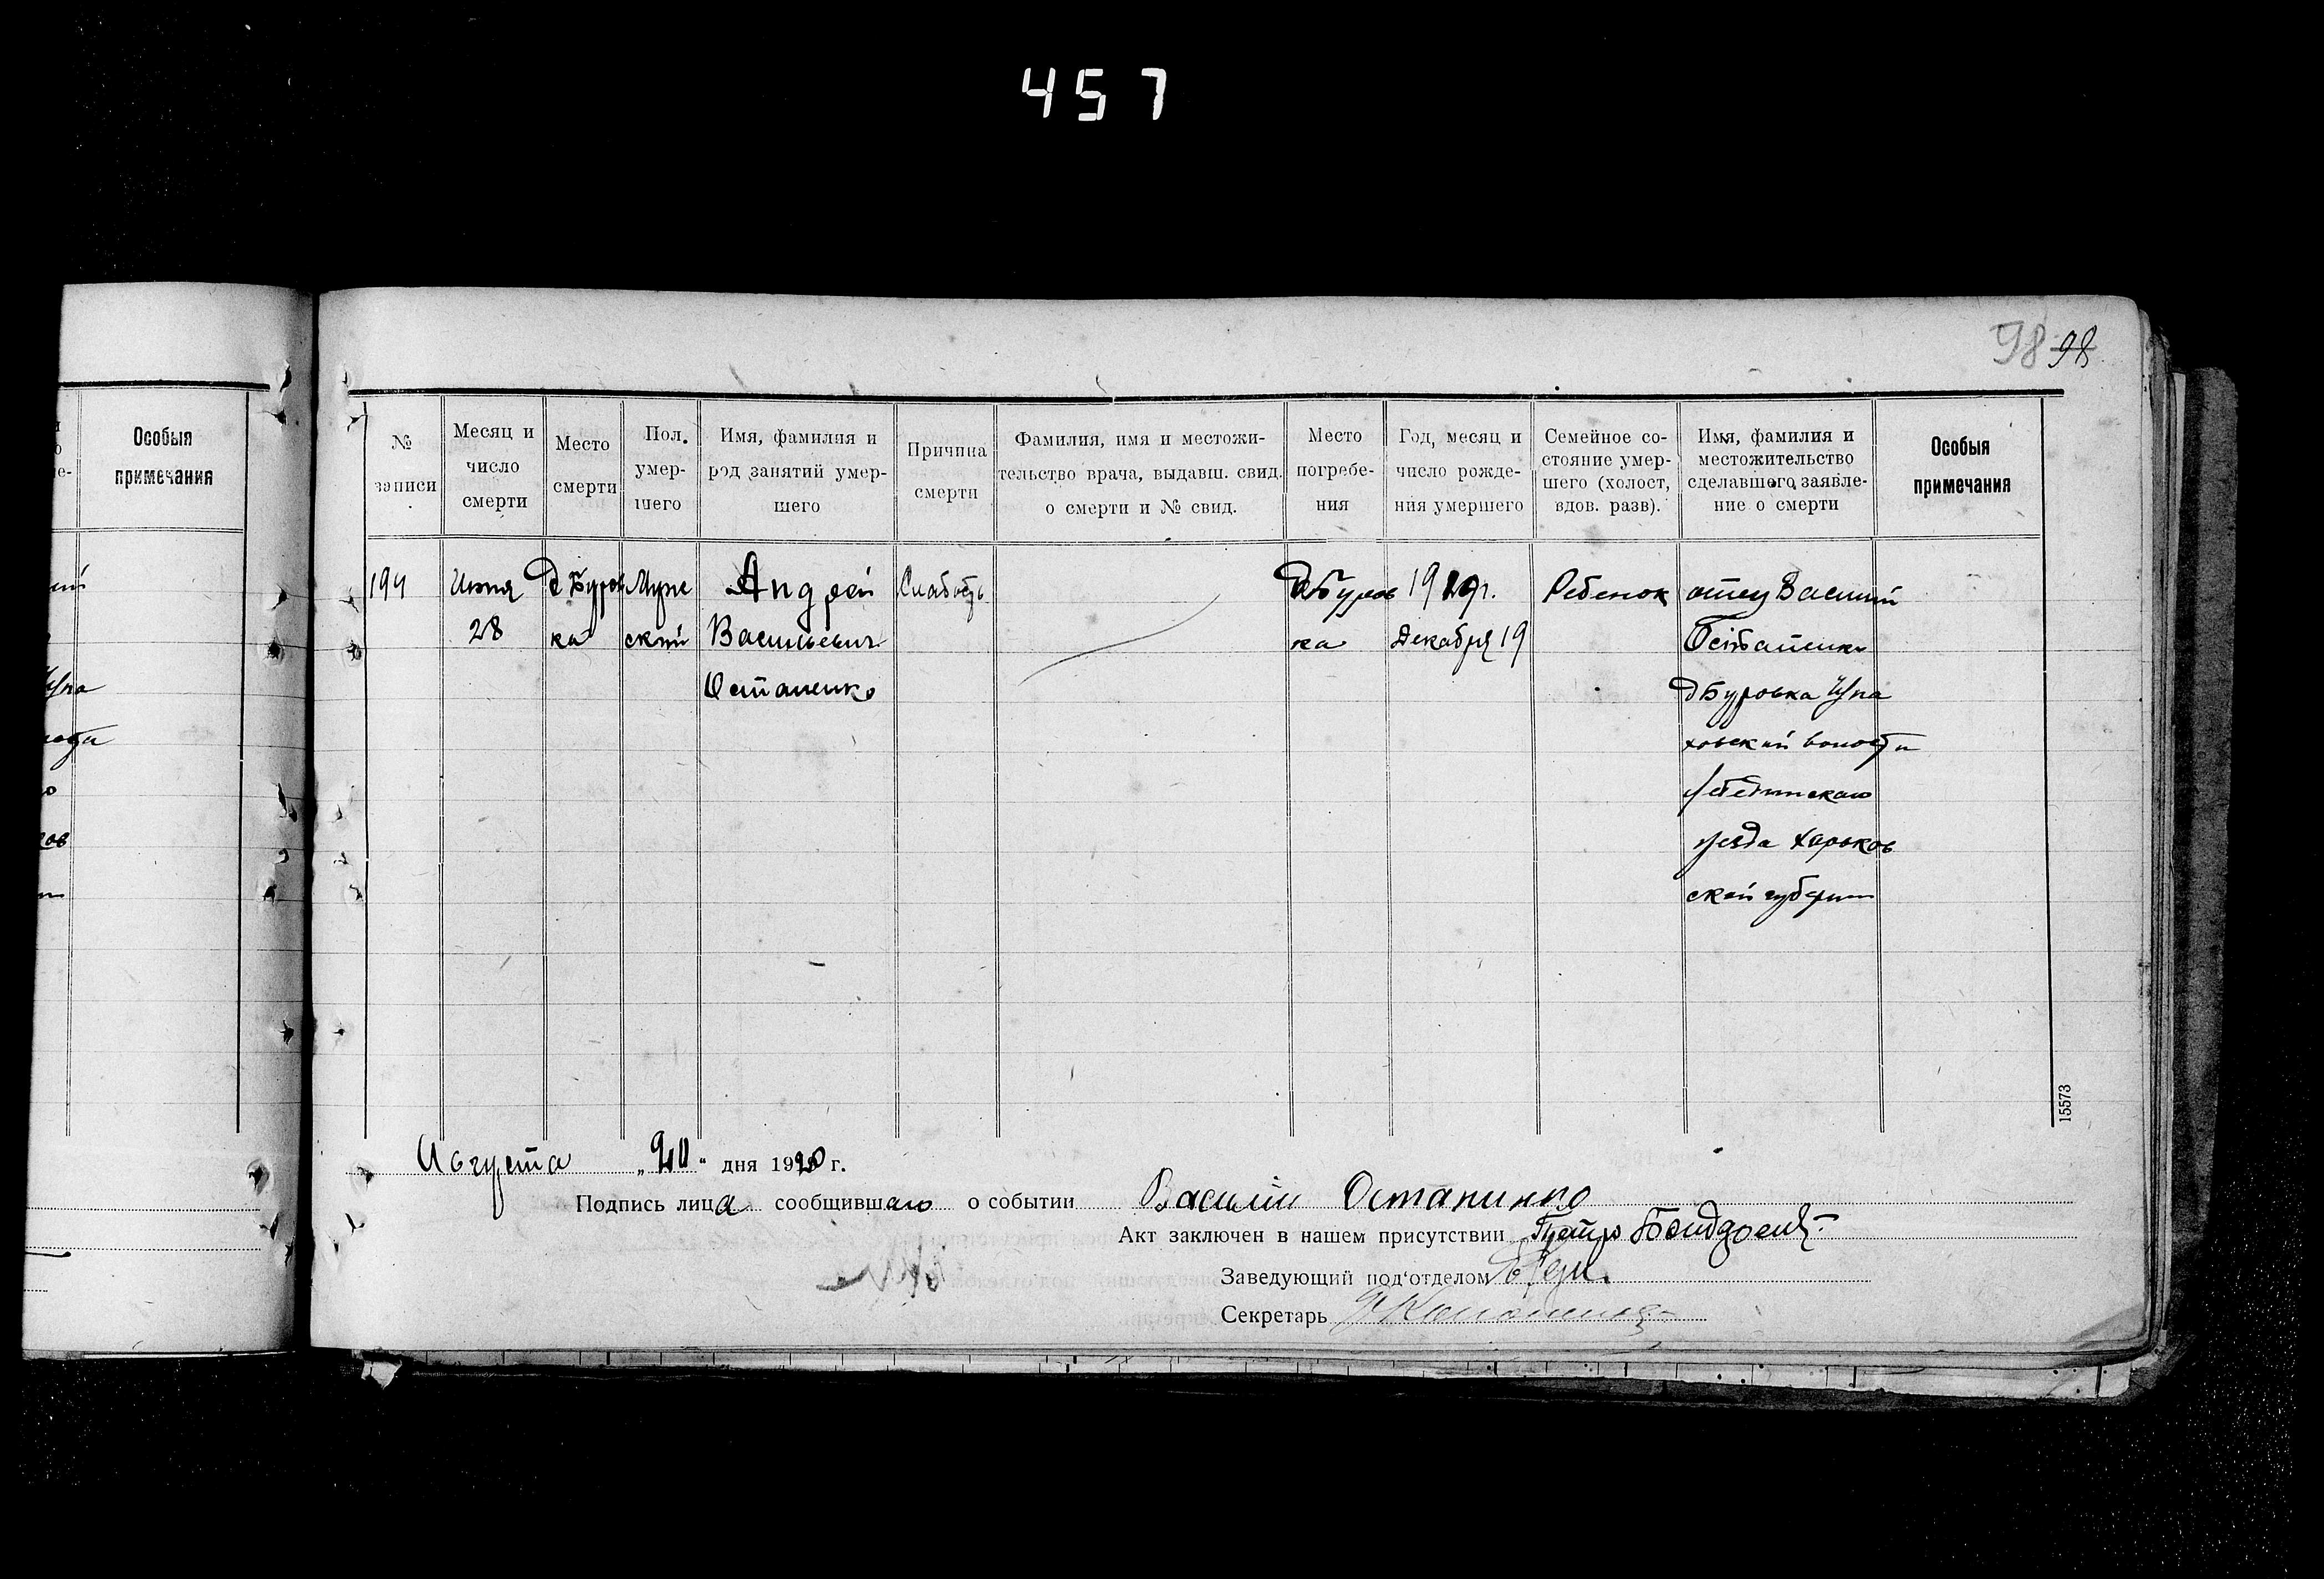 457
98 98
Особыя
примечания
№
записи
Месяц и
число
смерти
Место
смерти
Пол.
умер-
шего
Имя, фамилия и
род занятий умер-
шего
Причина
смерти
Фамилия, имя и местожи-
тельство врача, выдавш. свид.
о смерти и № свид.
Место
погребе-
ния
Год, месяц и
число рожде-
ния умершего
Семейное со-
стояние умер-
шего (холост,
вдов. разв).
Имя, фамилия и
местожительство
сделавшего заявле-
ние о смерти
Особыя
примечания
194
28
д Буров
ка
Муж
ский
Андрей
Васильевич
Остапенко
Слабость
д Буров
ка
1919 г.
Декабря 19
Ребенок
отец Василий
Остапенко
д Буровка
ховский волости
Лебединскаго
уезда Харьков
ской губернии
15573
Августа „20“ дня 1920 г.
Подпись лица сообщившаго о событии Василий Остапинко
Акт заключен в нашем присутствии Петро
Заведующий под‘отделом
Секретарь